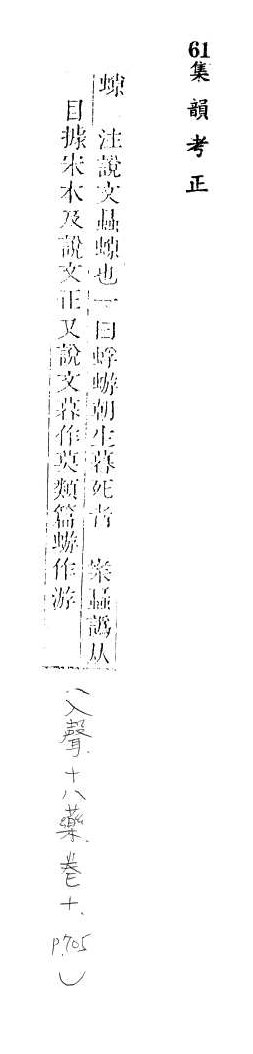 61集韻考正
注說文螶也一曰蜉蝣朝生暮死者 案螶譌从
目據宋本及說文正又說文暮作莫類篇蝣作游
(入聲.十八藥.卷十.P.705)